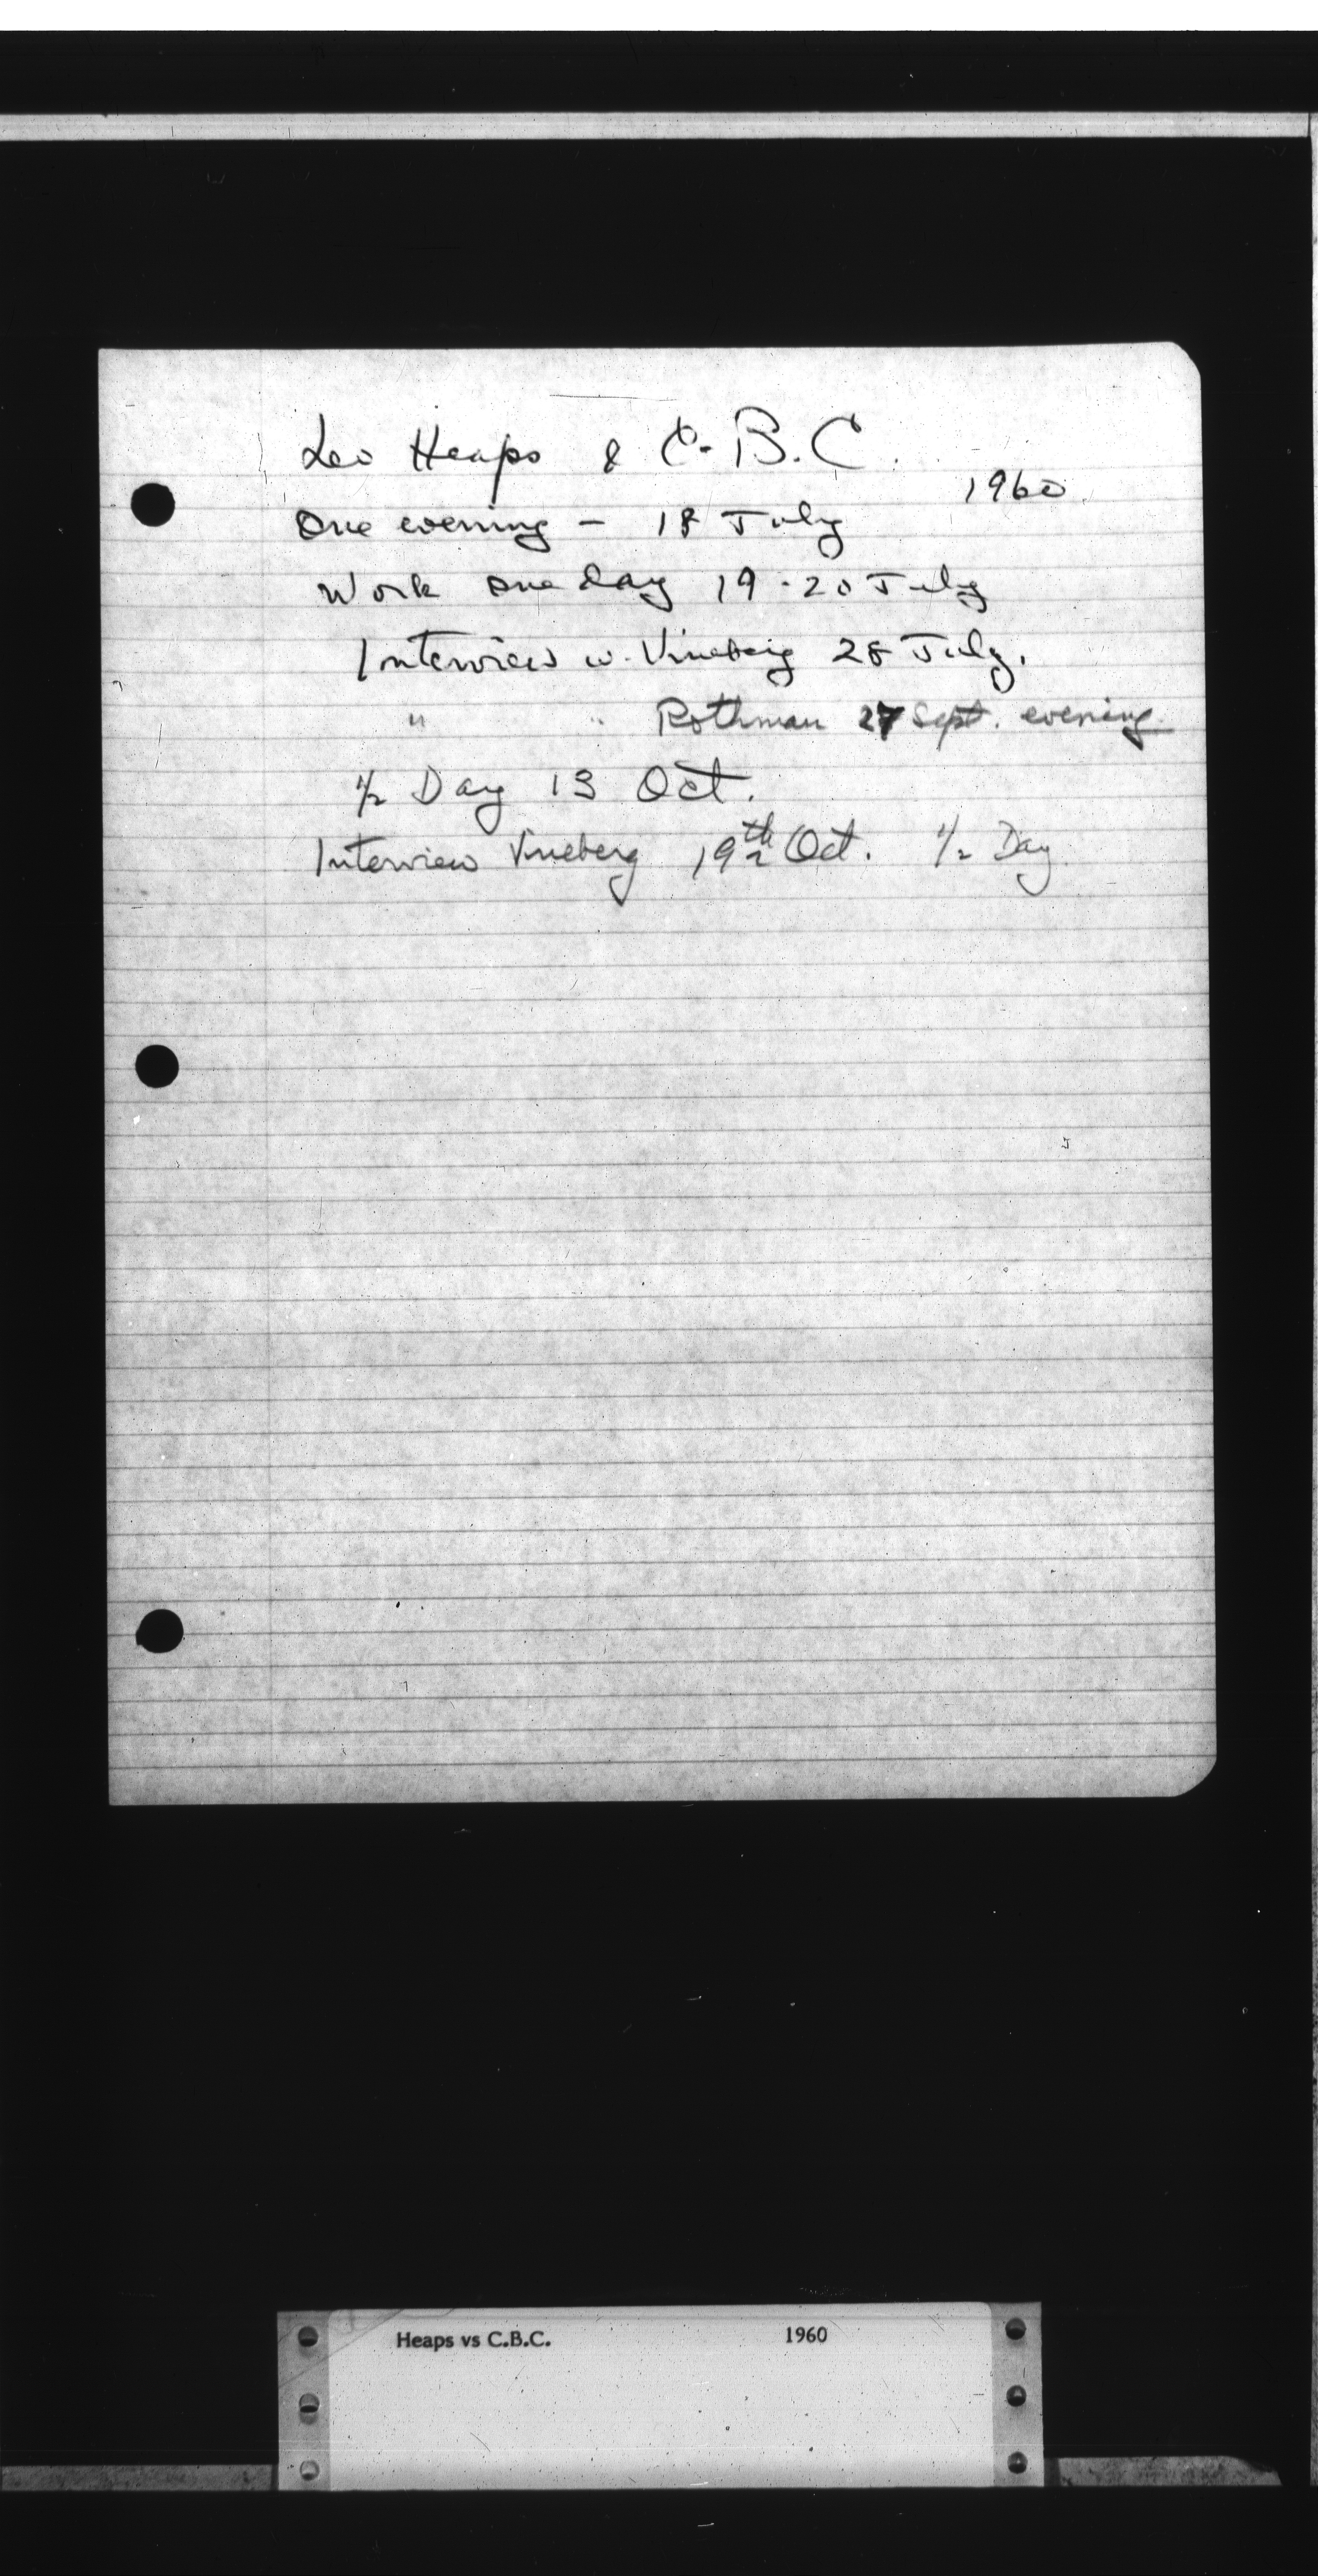 Leo Heaps & C.B.C.
1960
One evening – 18 July
Work one day 19-20 July
Interview w. Vineberg 28 July.
" " Rothman 27 Sept. evening
1/2 Day 13 Oct.
Interview Vineberg 19th Oct. 1/2 Day
Heaps vs C.B.C. 1960